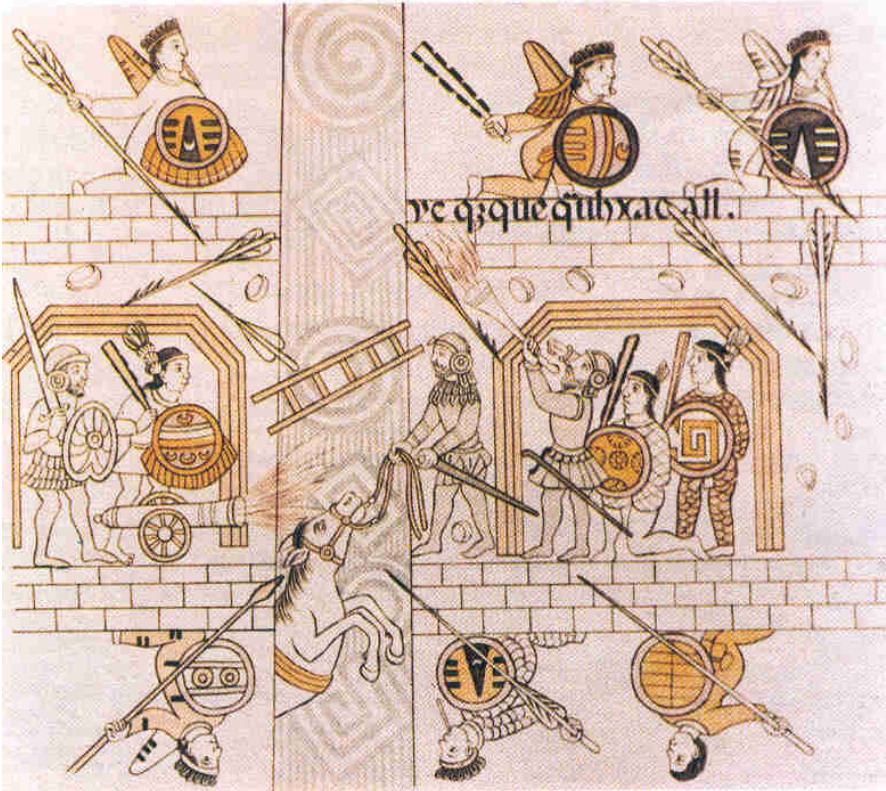 yc qz̃que q̃uhxacall.